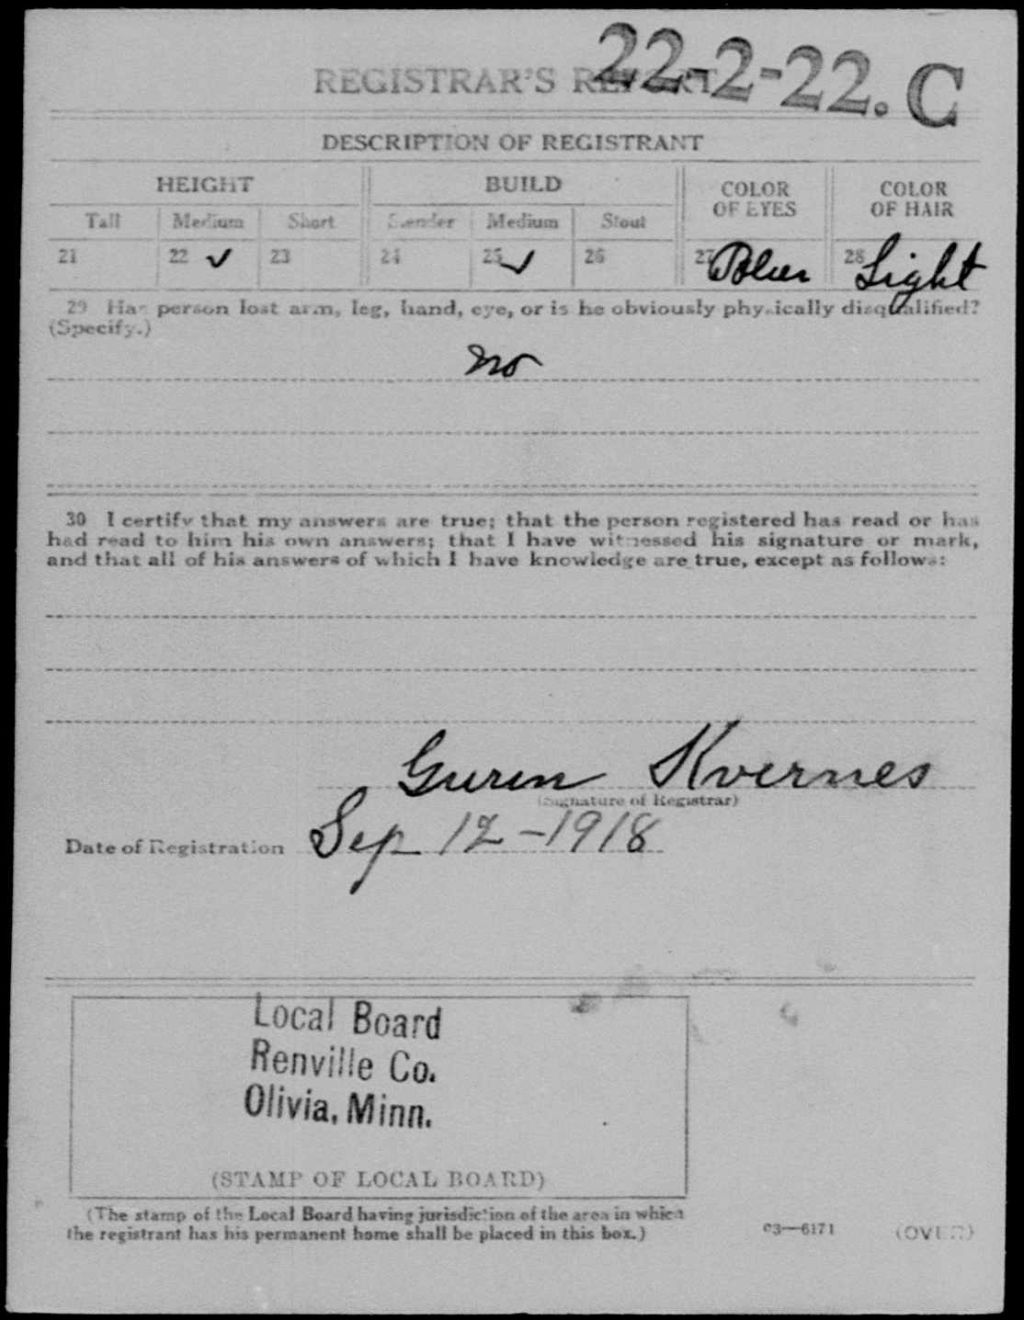 REGISTRAR'S REPORT
22-2-22. C
DESCRIPTION OF REGISTRANT
HEIGHT BUILD COLOR OF EYES COLOR OF HAIR
Tall Medium Short Slender Medium Stout
21 22 ✓ 23 24 25 ✓ 26 27 Blue 28 Light
29 Has person lost arm, leg, hand, eye, or is he obviously physically disqualified?
(Specify.)
No
30 I certify that my answers are true; that the person registered has read or has
had read to him his own answers; that I have witnessed his signature or mark,
and that all of his answers of which I have knowledge are true, except as follows:
Guren Kvernes
(Signature of Registrar)
Date of Registration Sep 12-1918
Local Board
Renville Co.
Olivia, Minn.
(STAMP OF LOCAL BOARD)
(The stamp of the Local Board having jurisdiction of the area in which
the registrant has his permanent home shall be placed in this box.)
03—6171 (OVER)